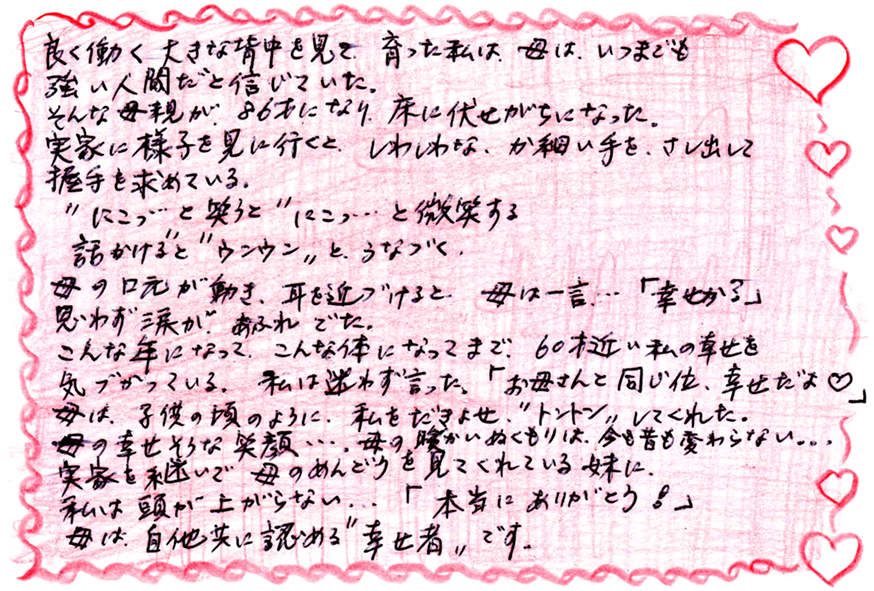 良く働く大きな背中を見て、育った私は、母は、いつまでも
強い人間だと信じていた。
そんな母親が、86才になり、床に伏せがちになった。
実家に様子を見に行くと、しわしわな、か細い手を、さし出して
握手を求めている。
"にこっ…と笑うと"にこっ…と微笑する
話かける"と"ウンウン〟と、うなづく、
母の口元が動き、耳を近づけると、母は一言…「幸せかる」
思わず涙が、あふれでた。
こんな年になって、こんな体になってまで、60才近い私の幸せを
気づかっている。私は迷わず言った。「お母さんと同じ位、幸せだよ♡」
母は、子供の頃のように、私をだきよせ、"トントン〟してくれた。
母の幸せそうな笑顔…。母の暖かいぬくもりは、今も昔も変わらない…
実家を継いで、母のめんどうを見てくれている妹に、
私は頭が上がらない…「本当にありがとう!」
母は、自他共に認める"幸せ者〟です。